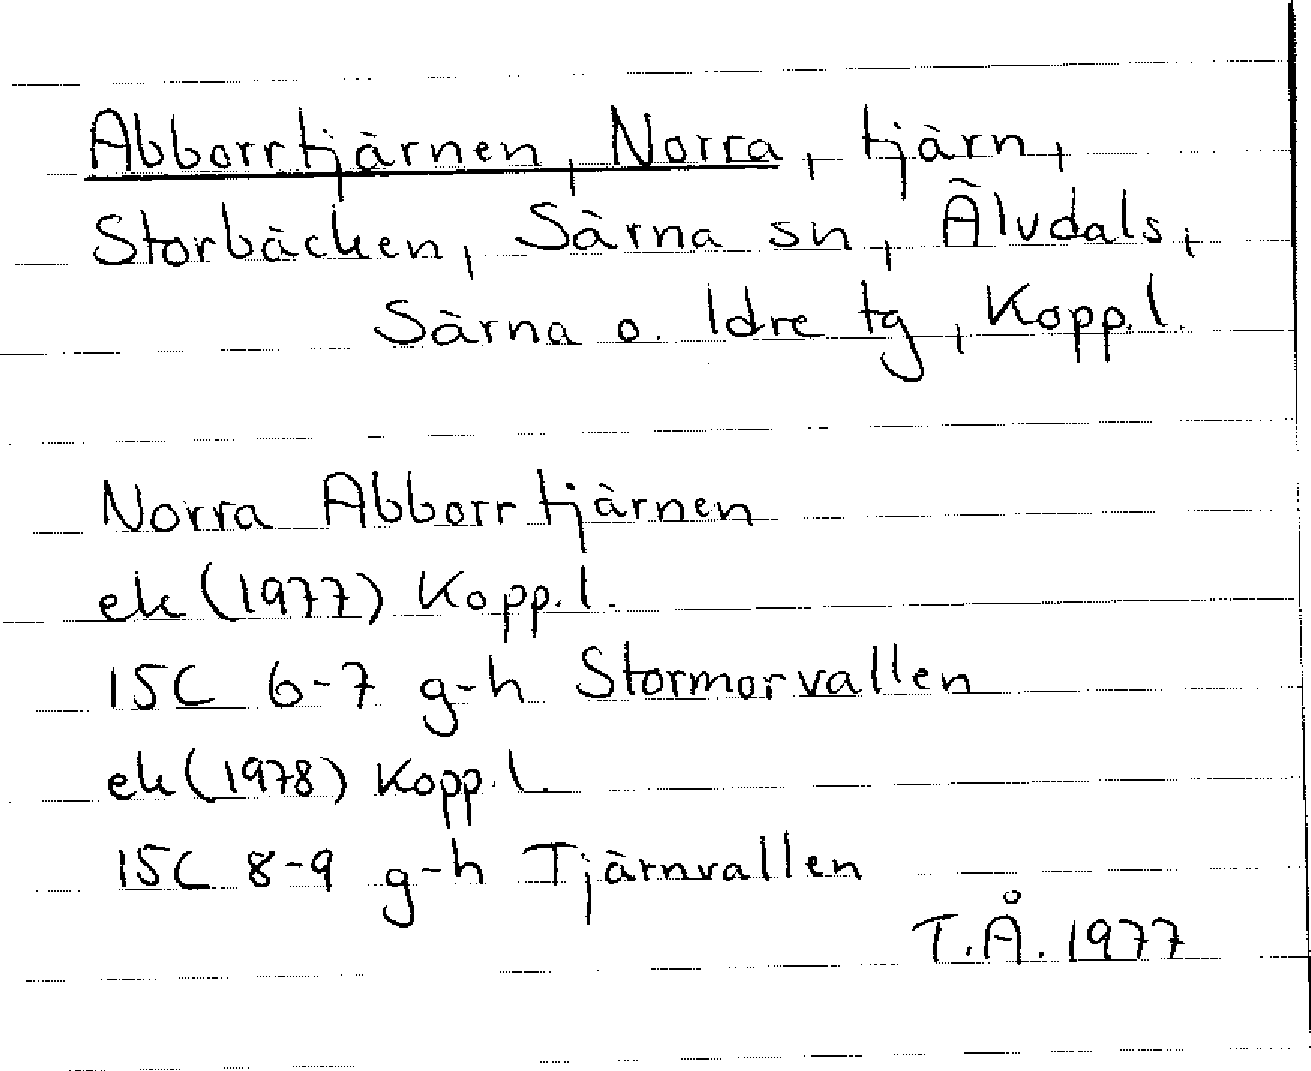 Abborrtjärnen, Norra, tjärn,
Storbäcken, Särna sn, Älvdals,
Särna o. Idre tg, Kopp.l.
Norra Abborrtjärnen
ek (1977) Kopp.l.
15C 6-7 g-h Stormorvallen
ek (1978) Kopp.l.
15C 8-9 g-h Tjärnvallen
T.Å. 1977